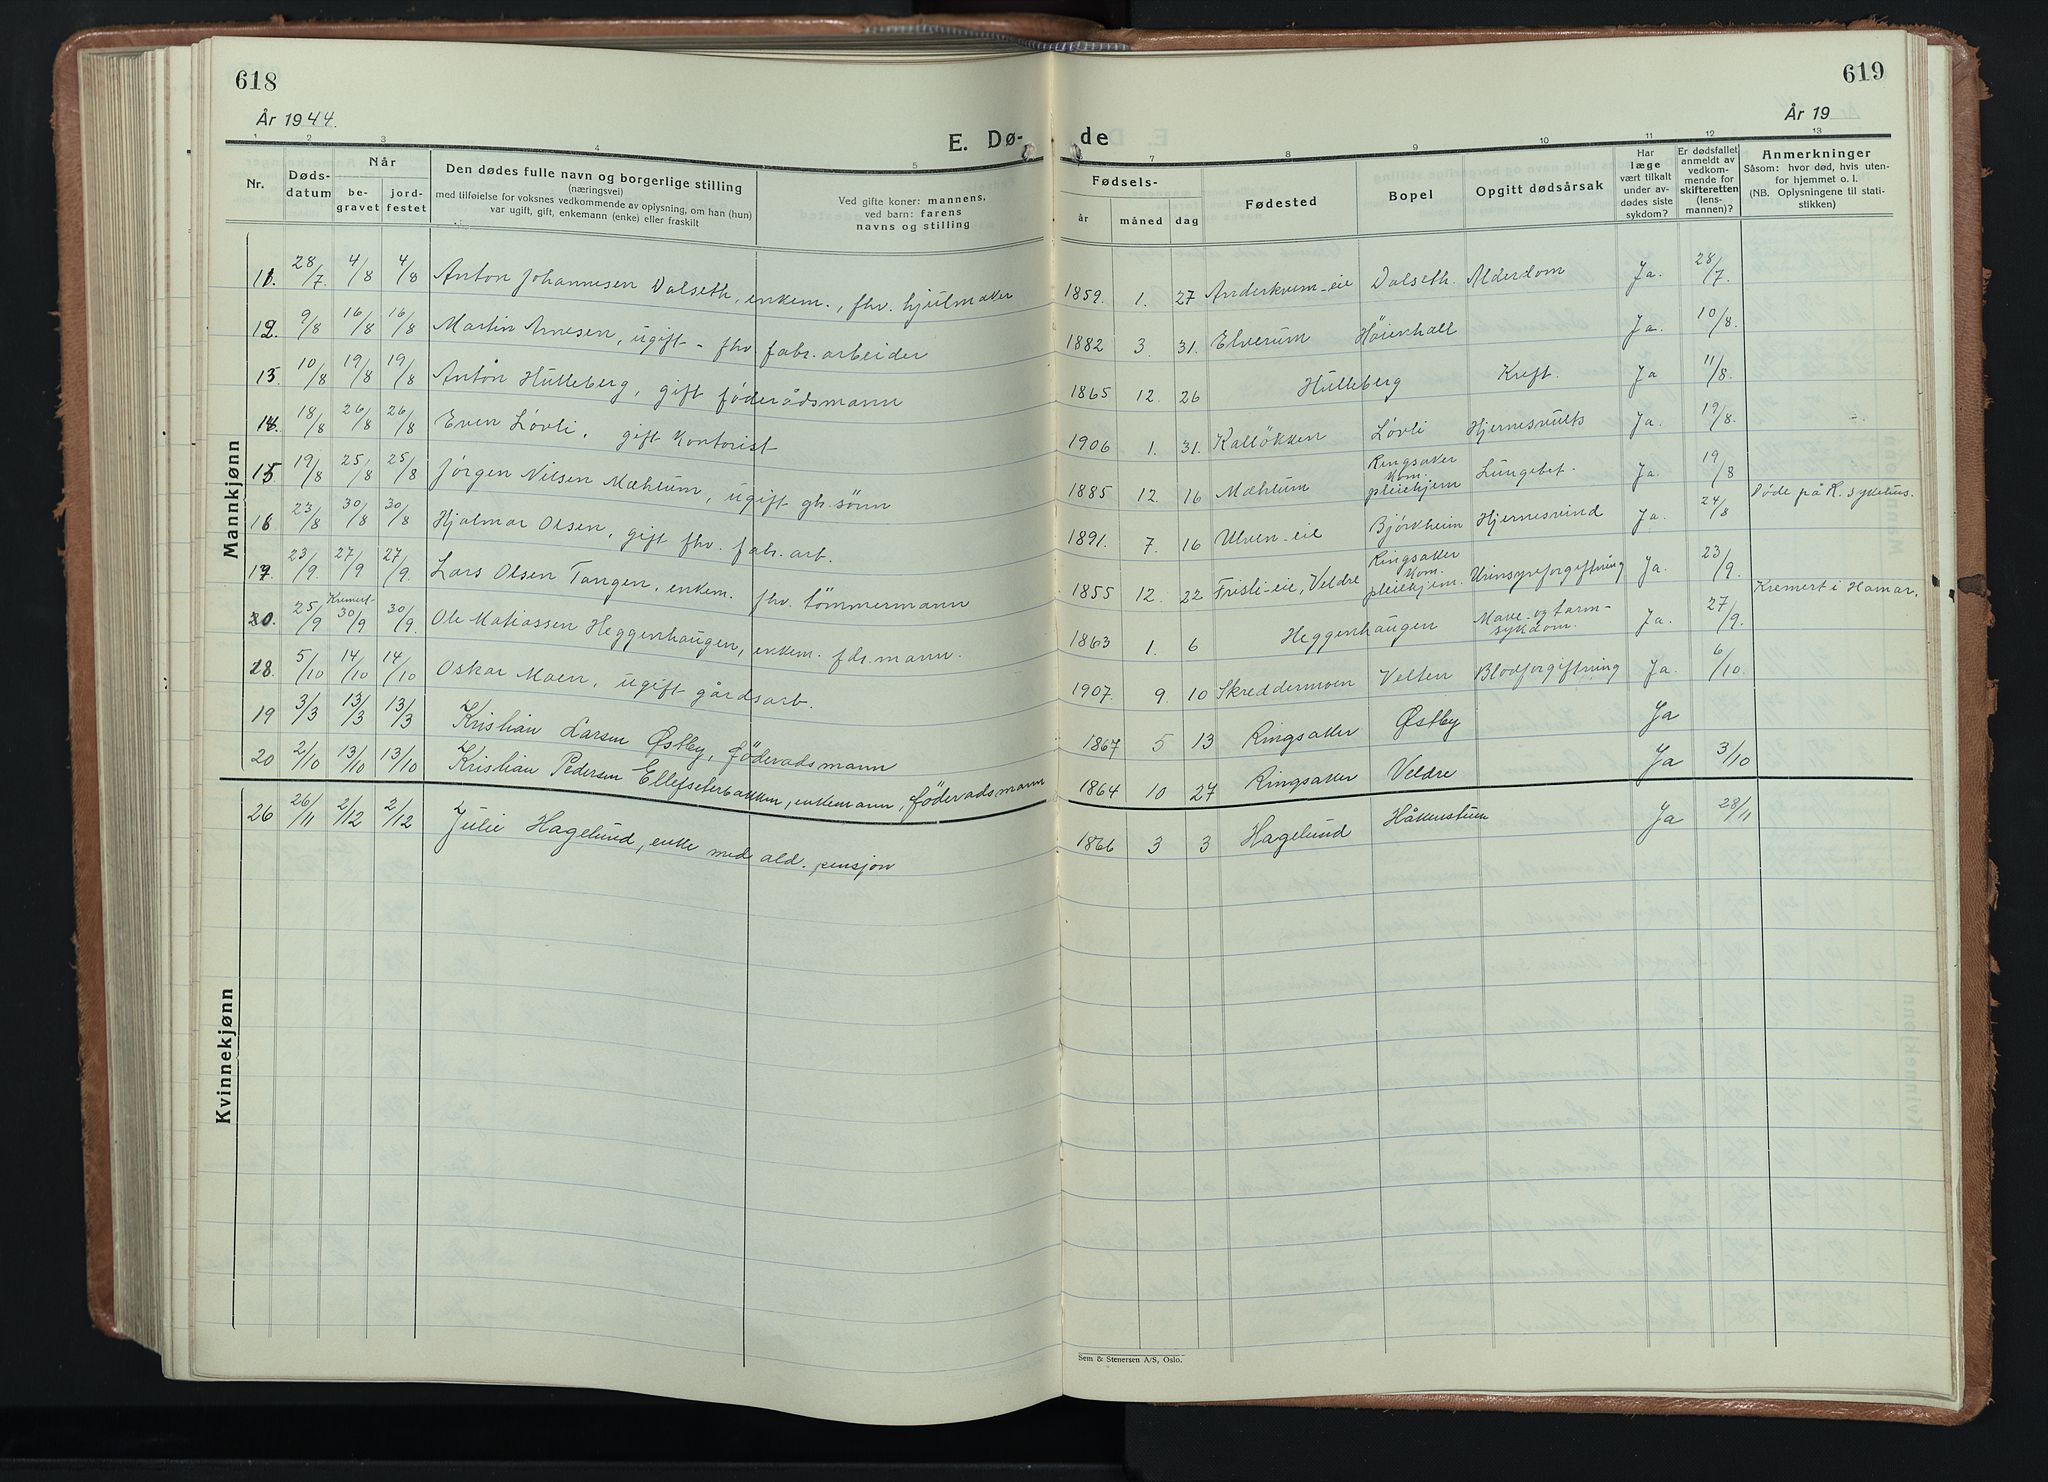 618
619
År 1944.
År 19
E. Dø-
de
1 2 3 4 5 7 8 9 10 11 12 13
Nr.
Døds-
datum
Når
be-
gravet
jord-
festet
Den dødes fulle navn og borgerlige stilling
(næringsvei)
med tilføielse for voksnes vedkommende av oplysning, om han (hun)
var ugift, gift, enkemann (enke) eller fraskilt
Ved gifte koner: mannens,
ved barn: farens
navns og stilling
Fødsels-
år måned dag
Fødested
Bopel
Opgitt dødsårsak
Har
læge
vært tilkalt
under av-
dødes siste
sykdom?
Er dødsfallet
anmeldt av
vedkom-
mende for
skifteretten
(lens-
mannen)?
Anmerkninger
Såsom: hvor død, hvis uten-
for hjemmet o. l.
(NB. Oplysningene til stati-
stikken)
Mannkjønn
11. 28/7 4/8 4/8 Anton Johannesen Dalseth, enkem., fhv. hjulmaker 1859. 1. 27 Anderkvem-eie Dalseth. Alderdom Ja. 28/7.
12. 9/8 16/8 16/8 Martin Arnesen, ugift - fhv fabr. arbeider 1882 3. 31. Elverum Høienhall Ja. 10/8.
13. 10/8 19/8 19/8 Anton Hulleberg, gift føderådsmann 1865 12. 26 Hulleberg Kreft. Ja 11/8.
14. 18/8 26/8 26/8 Even Løvli, gift kontorist 1906 1. 31. Kalløkken Løvli Hjernesvults Ja. 19/8.
15 19/8 25/8 25/8 Jørgen Nilsen Mæhlum, ugift gb. sønn 1885 12. 16 Mæhlum Ringsaker kom. pleiehjem Lungebet. Ja. 19/8
16 23/8 30/8 30/8 Hjalmar Olsen, gift fhv. fabr. arb. 1891. 7. 16 Ulven-eie Bjørkheim Hjernesvind Ja. 24/8 Døde på R. sykehus.
17. 23/9. 27/9 27/9. Lars Olsen Tangen, enkem. fhv. tømmermann 1855 12. 22 Fristi-eie, Veldre Ringsaker kom. pleiehjem. Urinsyreforgiftning Ja. 23/9.
20. 25/9 Kremert 30/9 30/9. Ole Matiassen Heggenhaugen, enkem. fdr. mann. 1863 1. 6 Heggenhaugen Mave- og tarm-sykdom. Ja. 27/9. Kremert i Hamar.
18. 5/10 14/10 14/10 Oskar Moen, ugift gårdsarb. 1907. 9. 10 Skreddermoen Velten Blodforgiftning Ja. 6/10.
19 3/3 13/3 13/3 Kristian Larsen Østby, føderadsmann 1867 5 13 Ringsaker Østby Ja
20 2/10 13/10 13/10 Kristian Pedersen Ellefseterbakken, enkemann, føderadsmann 1864 10 27 Ringsaker Veldre Ja 3/10
Kvinnekjønn
26 26/11 2/12 2/12 Julie Hagelund, enke med ald. pensjon 1866 3 3 Hagelund Håkenstuen Ja 28/11
Sem & Stenersen A/S, Oslo.